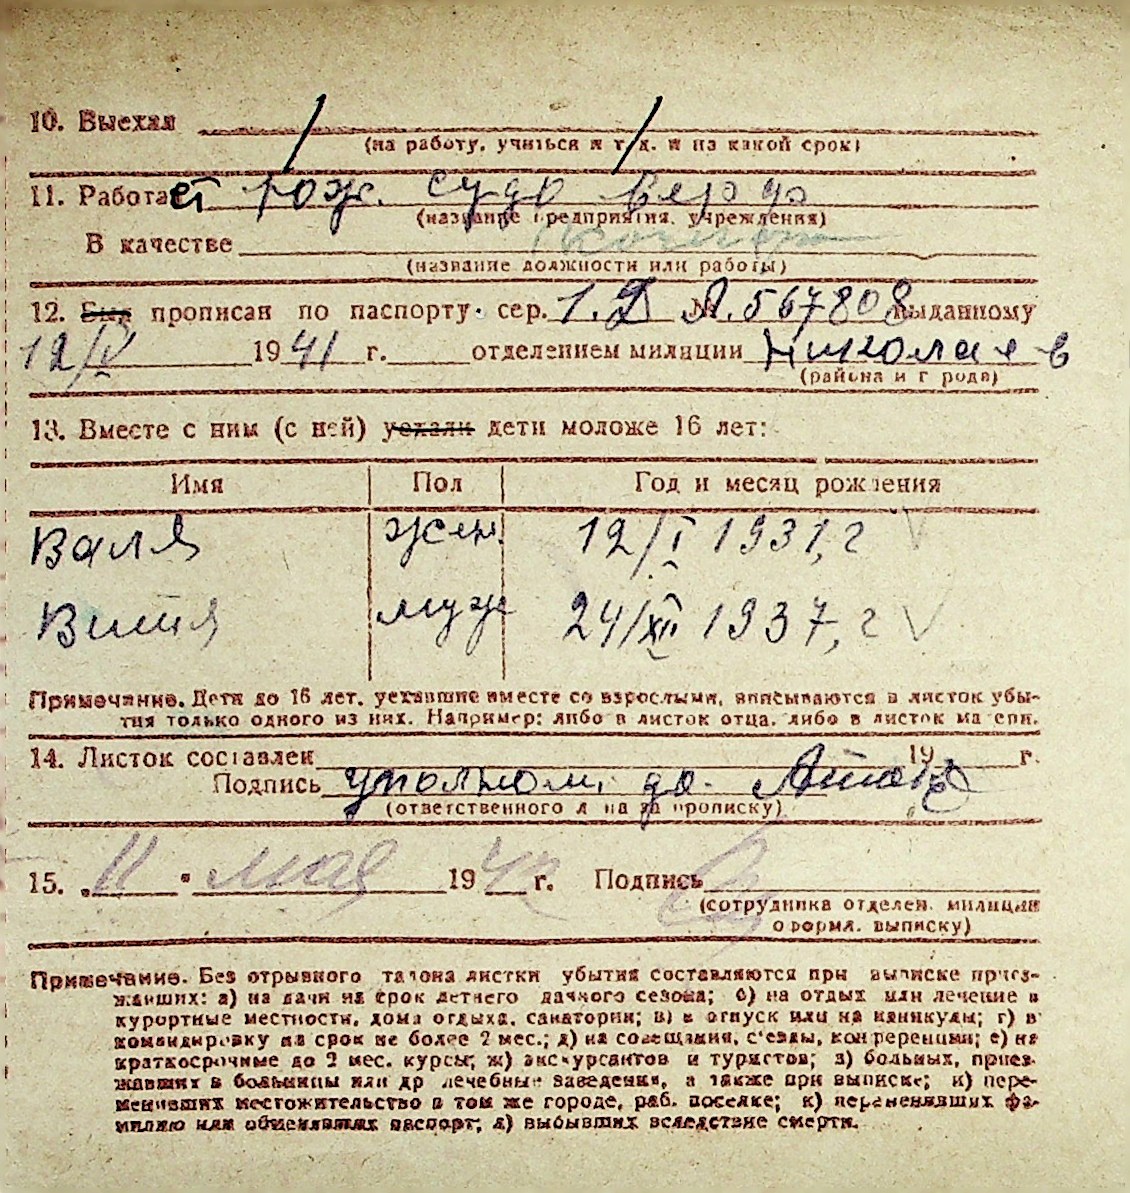 10. Выехал
(на работу, учиться и т. д. и на какой срок)
11. Работает юж. судо верфь
(название предприятия, учреждения)
В качестве
(название должности или работы)
12. Был прописан по паспорту сер. 1. Д № Л. 567808 выданному
12/V 1941 г. отделением милиции Николаев
(района и города)
13. Вместе с ним (с ней) уехали дети моложе 16 лет:
Имя Пол Год и месяц рождения
Валя жен. 12/I 1931, г V
Витя муж 24/XII 1937, г V
Примечание. Дети до 16 лет, уехавшие вместе со взрослыми, вписываются в листок убы-
тия только одного из них. Например: либо в листок отца, либо в листок матери.
14. Листок составлен 19 г.
Подпись уполном. до.
(ответственного лица за прописку)
15. „11" мая 1942 г. Подпись
(сотрудника отделен. милиции
оформл. выписку)
Примечание. Без отрывного талона листки убытия составляются при выписке приез-
жавших: а) на дачи на срок летнего дачного сезона; б) на отдых или лечение в
курортные местности, дома отдыха, санатории; в) в отпуск или на каникулы; г) в
командировку на срок не более 2 мес.; д) на совещания, съезды, конференции; е) на
краткосрочные до 2 мес. курсы; ж) экскурсантов и туристов; з) больных, приез-
жавших в больницы или др лечебные заведения, а также при выписке; и) пере-
менивших местожительство в том же городе, раб. поселке; к) переменявших фа-
милию или обменявших паспорт; л) выбывших вследствие смерти.